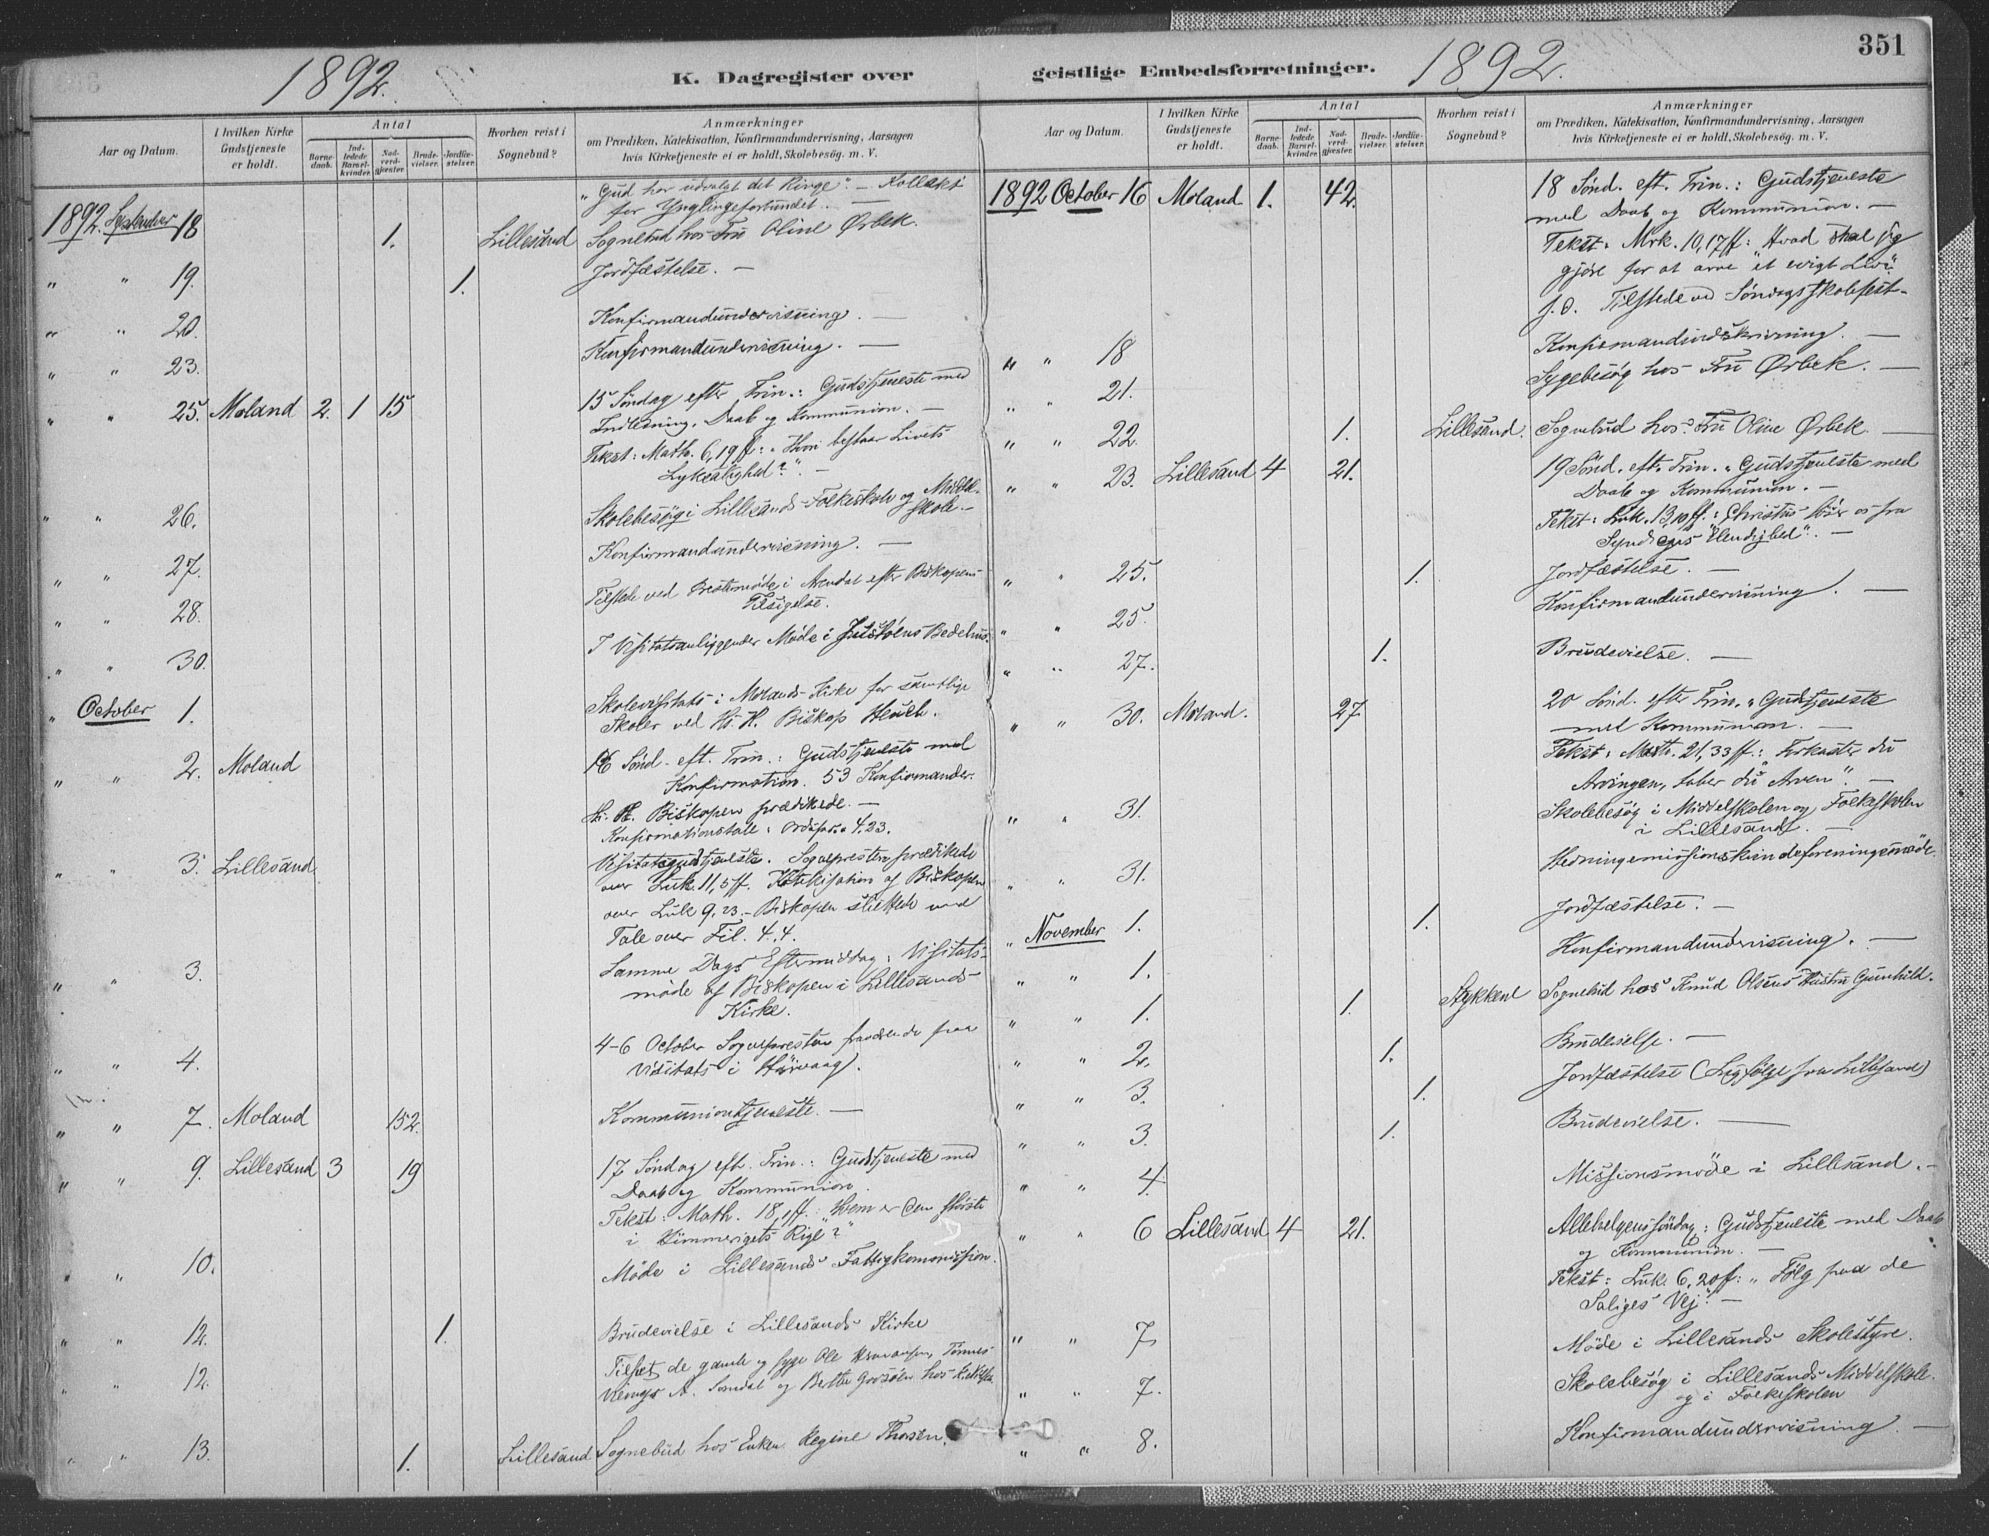 351
1892.
K. Dagregister over
geistlige Embedsforretninger.
1892.
Aar og Datum.
I hvilken Kirke Gudstjeneste er holdt.
Antal
Barnedaab.
Indledede Barselkvinder.
Nadverdgjæster.
Brudevielser.
Jordfæstelser.
Hvorhen reist i Sognebud?
Anmærkninger
om Prædiken, Katekisation, Konfirmandundervisning, Aarsagen
hvis Kirketjeneste ei er holdt, Skolebesøg. m. V.
"Gud har udvalgt det Ringe". — Kollekt
for Ynglingeforbundet. —
1892. September 18 1. Lillesand Sognebud hos Fru Oline Ørbek.
" " 19. 1. Jordfæstelse. —
" " 20. Konfirmandundervisning. —
" " 23. Konfirmandundervisning. —
" " 25. Moland 2. 1 15 15 Søndag efter Trin.: Gudstjeneste med
Indledning, Daab og Kommunion. —
Tekst: Math. 6,19 ff: "Hvori bestaar Livets
Lyksalighed?". —
" " 26. Skolebesøg i Lillesands Folkeskole og Middel-
skole. —
" " 27. Konfirmandundervisning. —
" " 28. Tilstede ved Prestemøde i Arendal efter Biskopens
Tilsigelse.
" " 30. I Visitatsanliggender Møde i Justøens Bedehus.
" October 1. Skolevisitats i Molands Kirke for samtlige
Skoler ved Hr. H. Biskop Heuch.
" " 2. Moland 16 Sønd. eft. Trin.: Gudstjeneste med
Konfirmation. 53 Konfirmander.
Hr. H. Biskopen prædikede. —
Konfirmationstale: Ordspr. 4.23.
" " 3. Lillesand Visitatsgudstjeneste. Sognepresten prædikede
over Luk. 11,5 ff. Katekisation af Biskopen
over Luk 9,23. — Biskopen sluttede med
Tale over Fil. 4.4.
" " 3. Samme Dags Eftermiddag: Visitats-
møde af Biskopen i Lillesands
Kirke.
" " 4. 4-6 October Sognepresten fraværende paa
Visitats i Høivaag.
" " 7. Moland 152. Kommuniontjeneste. —
" " 9. Lillesand 3 19 17 Søndag eft. Trin.: Gudstjeneste med
Daab og Kommunion.
Tekst: Math. 18,1 ff. "Hvem er den Største
i Himmerigets Rige?"
" " 10. Møde i Lillesands Fattigkommission.
" " 12. 1. Brudevielse i Lillesands Kirke
" " 12. Tilset de gamle og syge Ole
A. og Berthe hos
" " 13. 1. Lillesand Sognebud hos Enken Regine Thorsen.
Aar og Datum.
I hvilken Kirke Gudstjeneste er holdt.
Antal
Barnedaab.
Indledede Barselkvinder.
Nadverdgjæster.
Brudevielser.
Jordfæstelser.
Hvorhen reist i Sognebud?
Anmærkninger
om Prædiken, Katekisation, Konfirmandundervisning, Aarsagen
hvis Kirketjeneste ei er holdt, Skolebesøg. m. V.
1892 October 16 Moland 1. 42. 18 Sønd. eft. Trin.: Gudstjeneste
med Daab og Kommunion. —
Tekst: Mrk. 10,17 ff: Hvad skal jeg
gjøre for at arve et evigt Liv?
S. D. Tilstede ved Søndagsskolefest. —
" " 18 Konfirmandindskrivning. —
" " 21. Sygebesøg hos Fru Ørbek. —
" " 22. 1. Lillesand. Sognebud hos Fru Oline Ørbek —
" " 23. Lillesand 4 21. 19 Sønd. eft. Trin. "Gudstjeneste med
Daab og Kommunion. —
Tekst: Luk. 13,10 ff.: "Christus løser os fra
Syndens Elendighed". —
" " 25. 1. Jordfæstelse. —
" " 25. Konfirmandundervisning. —
" " 27. 1. Brudevielse. —
" " 30. Moland. 27 20 Sønd. efter Trin. "Gudstjeneste
med Kommunion. —
Tekst: Math. 21,33 ff.: "Forkaster du
Arvingen, taber du Arven". —
" " 31. Skolebesøg i Middelskolen og Folkeskolen
i Lillesand. —
" " 31. Hedningemissionskvindeforeningsmøde.
" November 1. 1. Jordfæstelse. —
" " 1. Konfirmandundervisning. —
" " 1. 1. Stykkene Sognebud hos Knud Olsens Hustru Gunhild.
" " 2. 1. Brudevielse. —
" " 3. 1. Jordfæstelse (Ligfølge fra Lillesand)
" " 3. 1. Brudevielse. —
" " 4. Missionsmøde i Lillesand. —
" " 6 Lillesand 4 21. Allehelgenssøndag: Gudstjeneste med Daab
og Kommunion. —
Tekst: Luk. 6,20 ff: "Følg paa de
Saliges Vej". —
" " 7 Møde i Lillesands Skolestyre.
" " 7. Skolebesøg i Lillesands Middelskole
og i Folkeskolen
" " 8. Konfirmandundervisning —